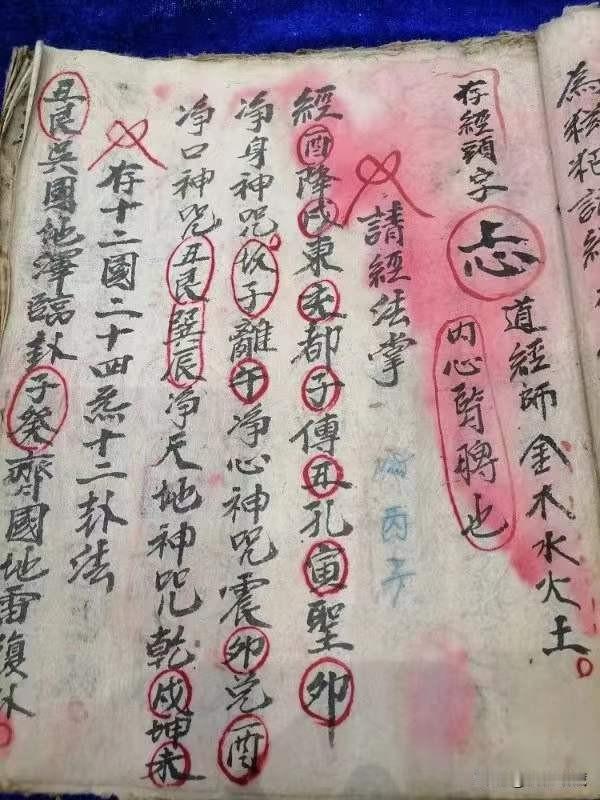 為粄粑請經
存經頭字
忐
道經師金木水火土
內心腎脾也
請經法掌
丙子
經酉降戌東亥都子傳丑孔寅聖卯
淨身神咒坎子離午淨心神咒震卯兌酉
淨口神咒丑艮巽辰淨天地神咒乾戌坤未
存十二國二十四炁十二卦法
丑艮吳國地澤臨卦子癸齊國地雷復卦